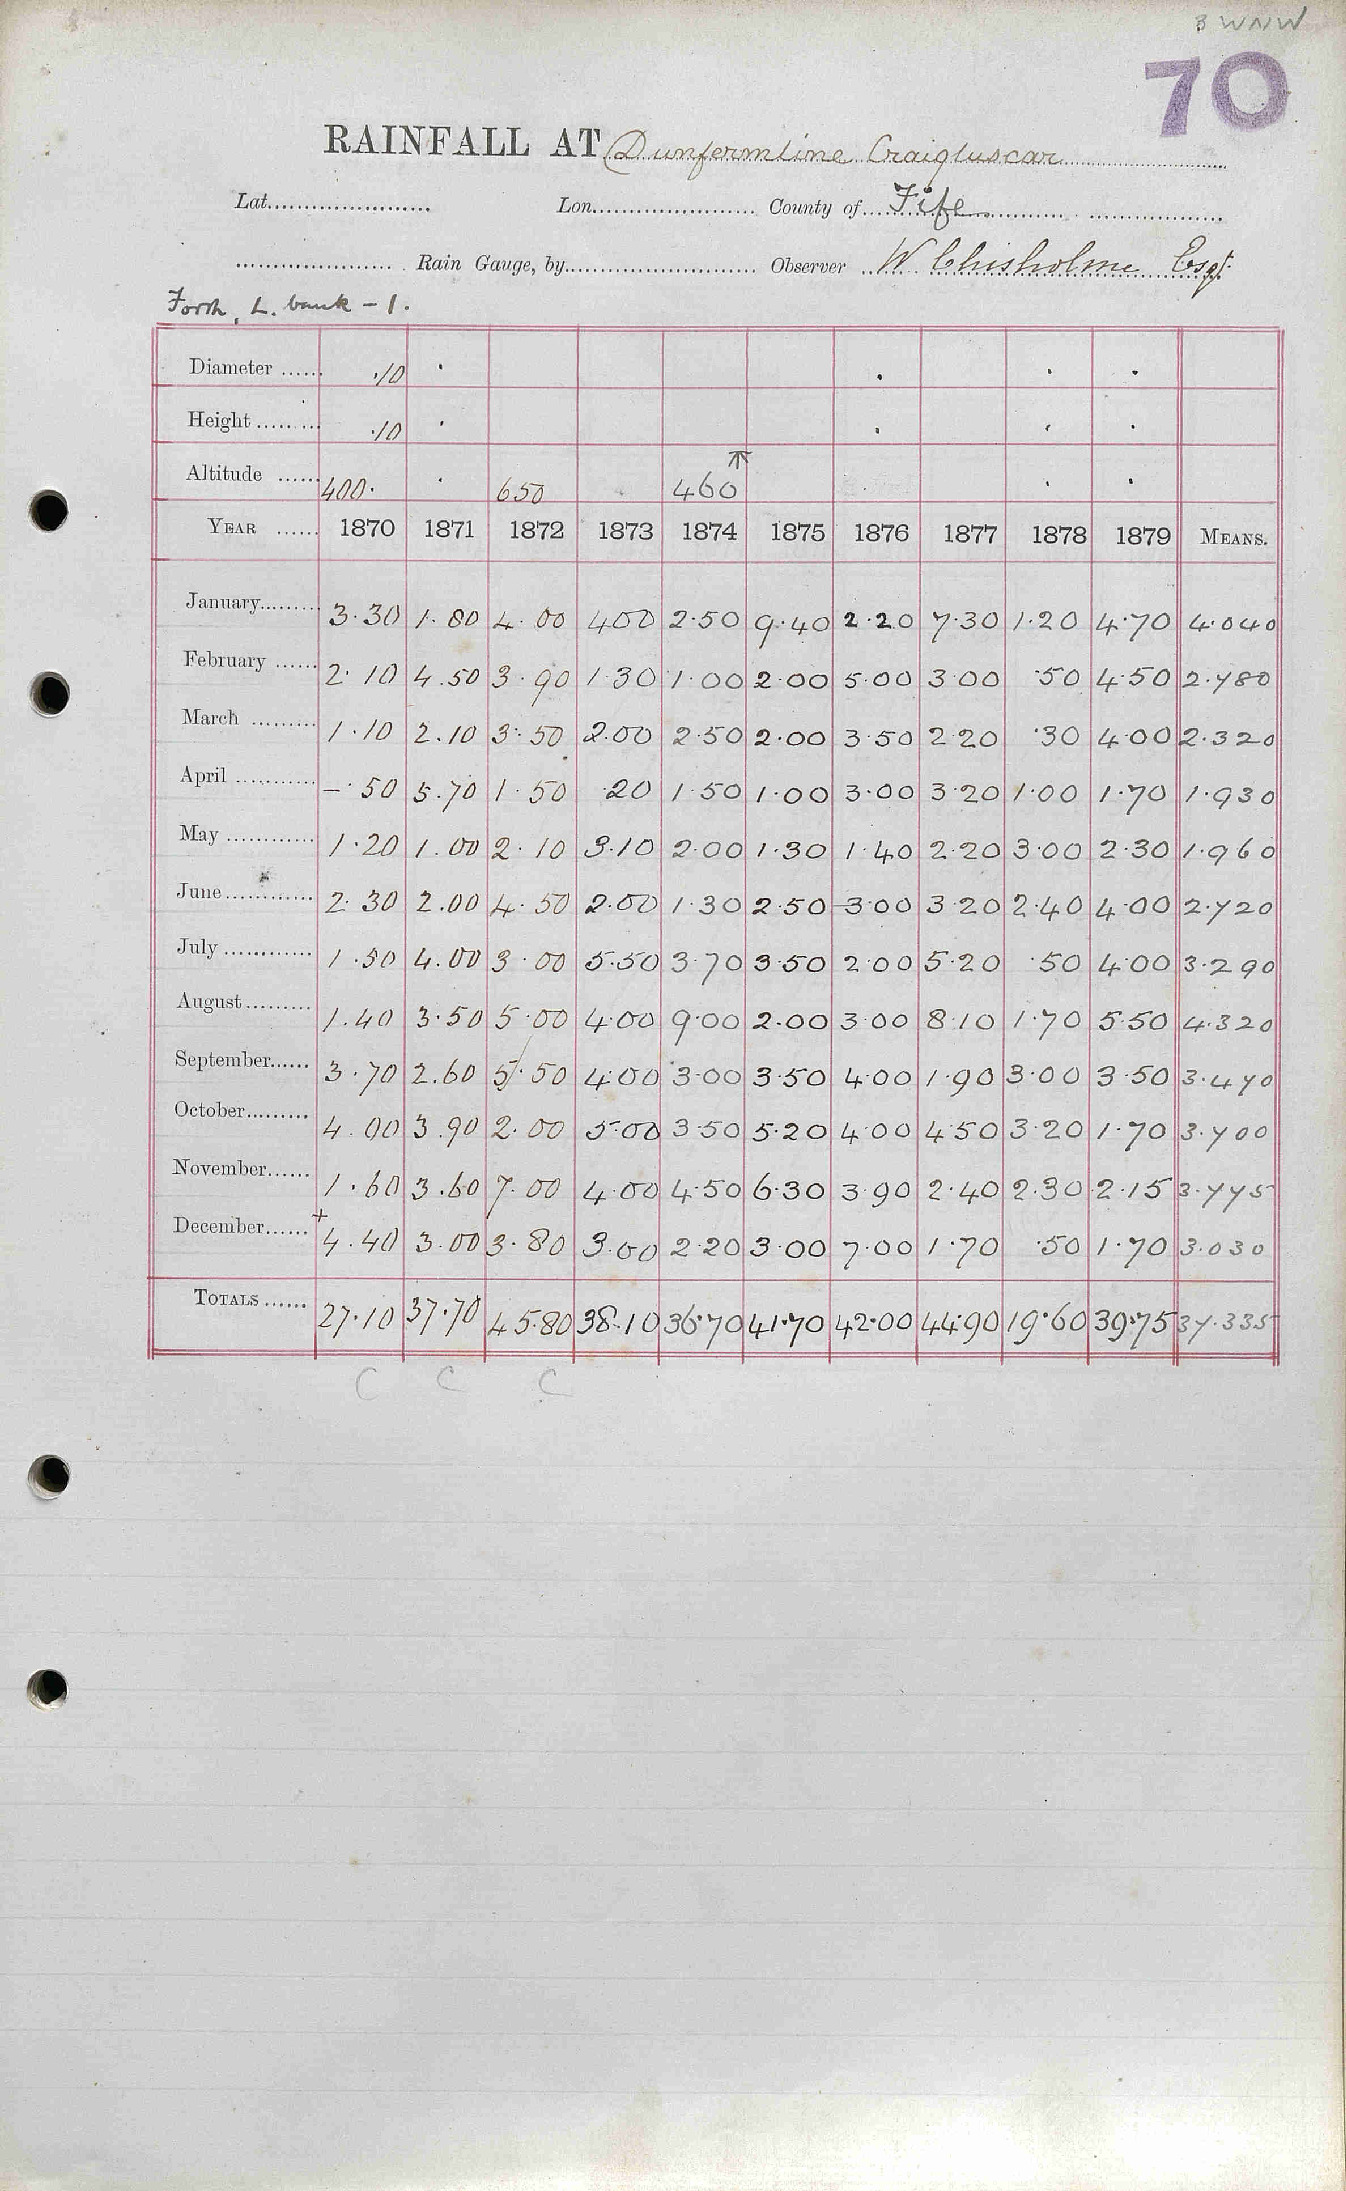 3 WNW
70
RAINFALL AT Dunfermline Craigluscar
Lat. Lon. County of Fife
Rain Gauge, by Observer W Chisholme Esqr.
Forth, L. bank - 1.
Diameter ...... ·10
Height ......... ·10
Altitude ...... 400· 650 460
YEAR ...... 1870 1871 1872 1873 1874 1875 1876 1877 1878 1879 MEANS.
January......... 3·30 1·80 4·00 400 2·50 9·40 2·20 7·30 1·20 4·70 4·040
February ...... 2·10 4.50 3·90 1·30 1·00 2·00 5·00 3·00 ·50 4·50 2·780
March ......... 1·10 2.10 3·50 2·00 2·50 2·00 3·50 2·20 ·30 4·00 2·320
April ............ –·50 5.70 1·50 ·20 1·50 1·00 3·00 3·20 1·00 1·70 1·930
May ............. 1·20 1.00 2·10 3·10 2·00 1·30 1·40 2·20 3·00 2·30 1·960
June............. 2·30 2.00 4·50 2·00 1·30 2·50 3·00 3·20 2·40 4·00 2·720
July ............. 1·50 4.00 3·00 5·50 3·70 3·50 2·00 5·20 ·50 4·00 3·290
August.......... 1.40 3·50 5·00 4·00 9·00 2·00 3·00 8·10 1·70 5·50 4·320
September...... 3·70 2.60 5·50 4·00 3·00 3·50 4·00 1·90 3·00 3·50 3·470
October......... 4.00 3.90 2·00 5·00 3·50 5·20 4·00 4·50 3·20 1·70 3·700
November...... 1·60 3.60 7·00 4·00 4·50 6·30 3·90 2·40 2·30 2·15 3·775
December...... + 4.40 3.00 3·80 3·00 2·20 3·00 7·00 1·70 ·50 1·70 3·030
TOTALS ...... 27·10 37·70 45·80 38·10 36·70 41·70 42·00 44·90 19·60 39·75 37·335
C C C